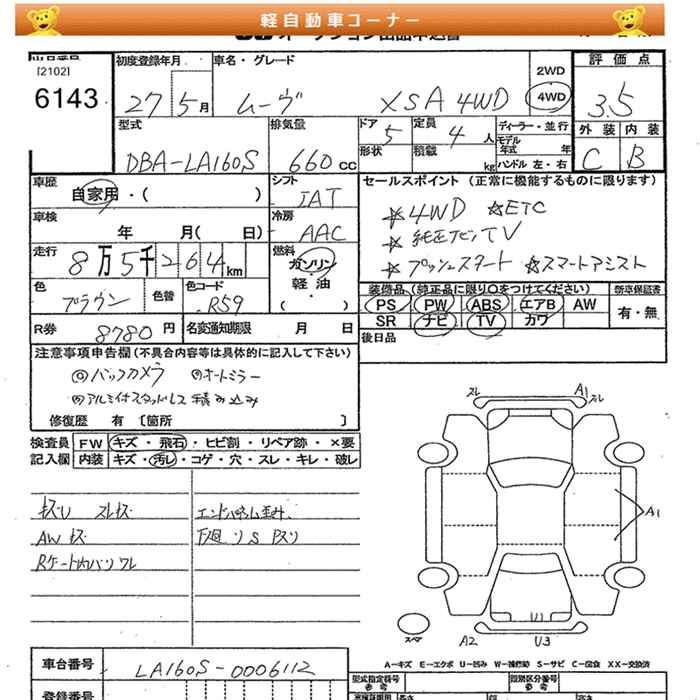 軽自動車コーナー
[2102]
6143
初度登録年月
27 5月
車名・グレード
ムーヴ XSA 4WD
2WD
4WD
評価点
3.5
外装 内装
C B
型式
DBA-LA160S
排気量
660cc
ドア 5
形状
定員 4人
積載 kg
ディーラー・並行
モデル年式 年
ハンドル 左・右
車歴
自家用・( )
シフト
IAT
セールスポイント (正常に機能するものに限ります)
☆4WD ☆ETC
☆純正ナビ、TV
☆プッシュスタート ☆スマートアシスト
車検
年 月( 日)
冷房
AAC
走行
8万5千264km
燃料
ガソリン
軽油
( )
色
ブラウン
色替
色コード
R59
装備品 (純正品に限り○をつけてください)
PS PW ABS エアB AW
SR ナビ TV カワ
新車保証書
有・無
R券 8780円
名変通知期限 月 日
後日品
注意事項申告欄(不具合内容等は具体的に記入して下さい)
◎バックカメラ ◎オートミラー
◎アルミ付スタッドレス 積み込み
修復歴 有 〔箇所 〕
検査員
記入欄
FW キズ・飛石・ヒビ割・リペア跡・×要
内装 キズ・汚レ・コゲ・穴・スレ・キレ・破レ
スレ A1 スレ
A1
キズU スレキズ
AWキズ
エンドパネル歪み
下廻り S
U1
スペア
A2 U3
車台番号
LA160S-0006112
A-キズ E-エクボ U-凹み W-補修跡 S-サビ C-腐食 XX-交換済
型式指定番号
参考
類別区分番号
参考
登録番号